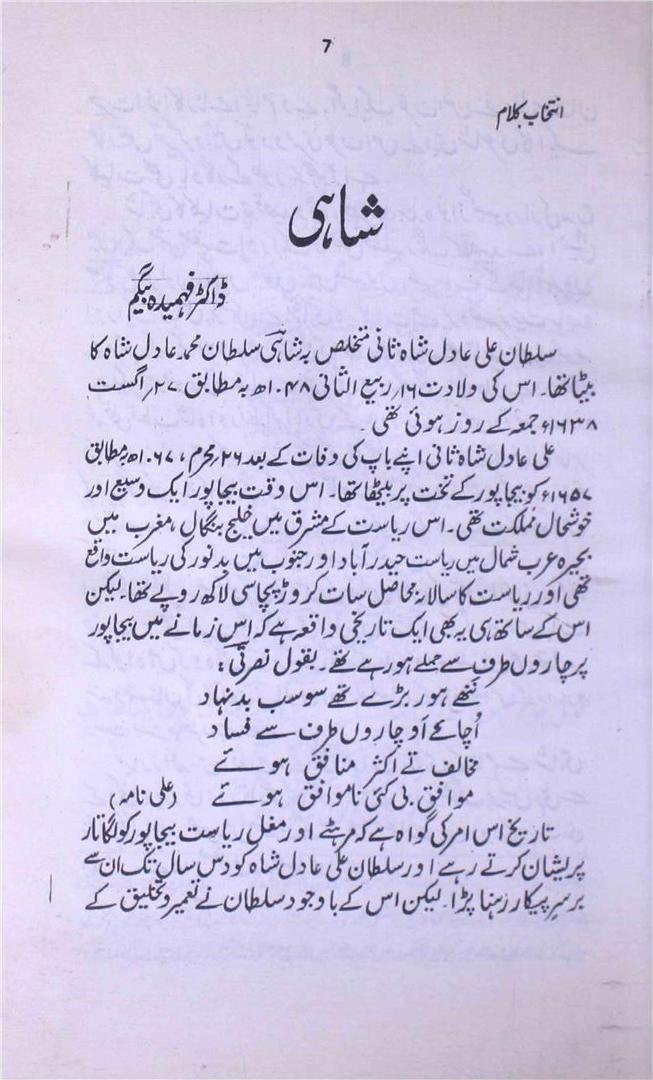 7
انتخاب کلام
شاہی
ڈاکٹر فہمیدہ بیگم
سلطان علی عادل شاہ ثانی متخلص بہ شاہی سلطان محمد عادل شاہ کا
بیٹا تھا۔ اس کی ولادت ۱۶؍ ربیع الثانی ۱۰۴۸ھ بہ مطابق ۲۷؍ اگست
۱۶۳۸ء جمعہ کے روز ہوئی تھی۔
علی عادل شاہ ثانی اپنے باپ کی وفات کے بعد ۲۶؍ محرم، ۱۰۶۷ھ بہ مطابق
۱۶۵۷ء کو بیجاپور کے تخت پر بیٹھا تھا۔ اس وقت بیجاپور ایک وسیع اور
خوشحال مملکت تھی۔ اس ریاست کے مشرق میں خلیج بنگال، مغرب میں
بحیرہ عرب شمال میں ریاست حیدرآباد اور جنوب میں بدنور کی ریاست واقع
تھی اور ریاست کا سالانہ محاصل سات کروڑ پچاسی لاکھ روپے تھا۔ لیکن
اس کے ساتھ ہی یہ بھی ایک تاریخی واقعہ ہے کہ اس زمانے میں بیجاپور
پر چاروں طرف سے حملے ہو رہے تھے۔ بقول نصرتی:
ننھے ہور بڑے تھے سو سب بد نہاد
اُچائے او چاروں طرف سے فساد
مخالف تے اکثر منافق ہوئے
موافق بی کئی ناموافق ہوئے (علی نامہ)
تاریخ اس امر کی گواہ ہے کہ مرہٹے اور مغل ریاست بیجاپور کو لگاتار
پریشان کرتے رہے اور سلطان علی عادل شاہ کو دس سال تک ان سے
برسرِ پیکار رہنا پڑا۔ لیکن اس کے باوجود سلطان نے تعمیر و تخلیق کے